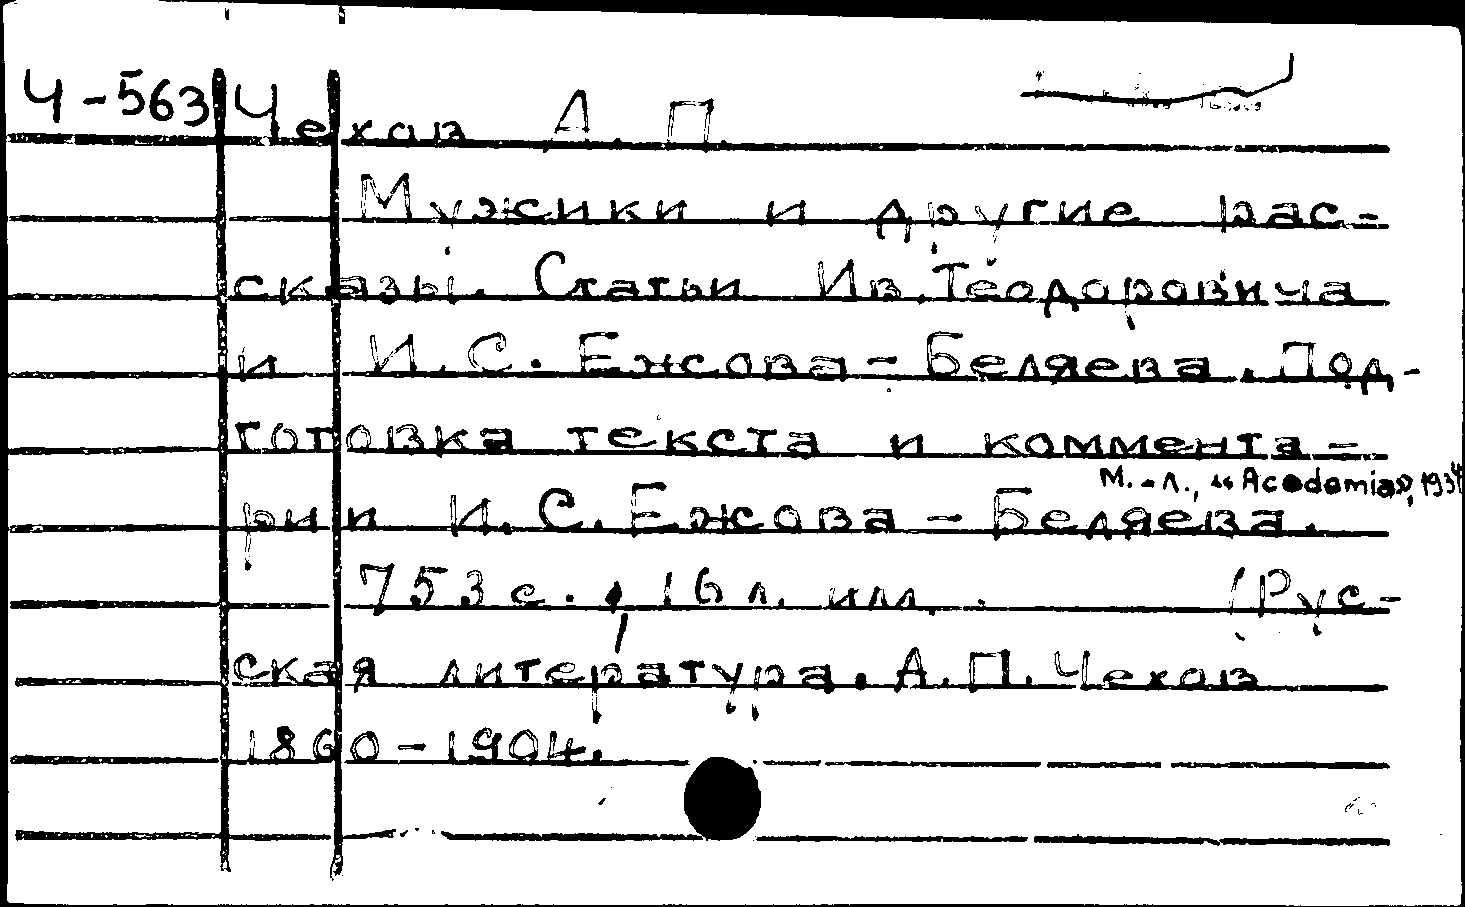 Ч-563 Чехов А. П.
Мужики и другие рас-
сказы. Статьи Ив. Теодоровича
и И. С. Ежова-Беляева. Под-
готовка текста и коммента-
рии И. С. Ежова-Беляева.
М.-Л., "Academia", 1934
753 с., 16 л. илл. (Рус-
ская литература. А. П. Чехов
1860-1904.